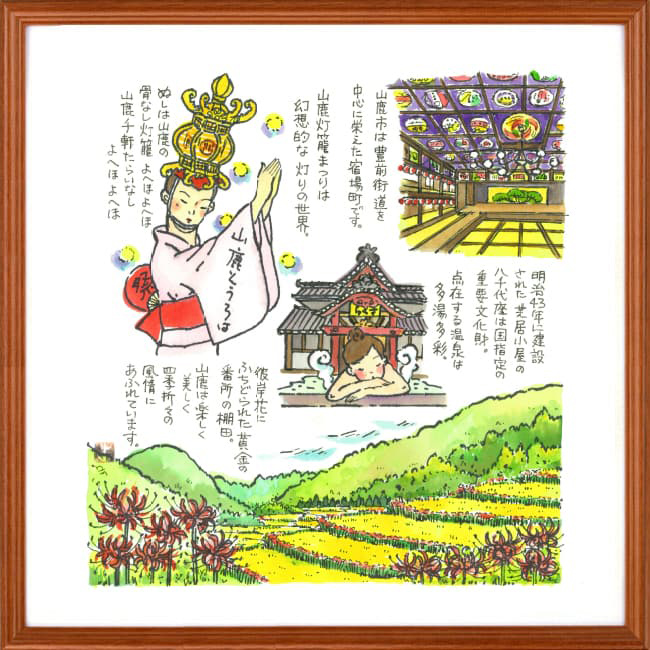 山鹿市は豊前街道を
中心に栄えた宿場町です。
山鹿灯籠まつりは
幻想的な灯りの世界。
ぬしは山鹿の
骨なし灯籠 よへほ よへほ
山鹿千軒たらいなし
よへほ よへほ
山鹿とうろうは
明治43年に建設
された芝居小屋の
八千代座は国指定の
重要文化財。
点在する温泉は
多湯多彩。
彼岸花に
ふちどられた黄金の
番所の棚田。
山鹿は楽しく
美しく
四季折々の
風情に
あふれています。